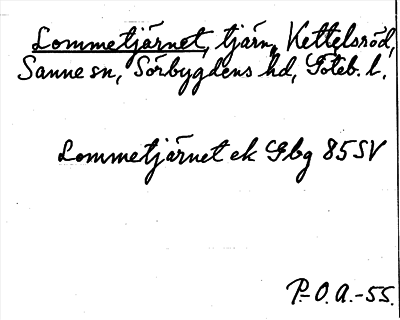 Lommetjärnet, tjärn, Kettelsröd,
Sanne sn, Sörbygdens hd, Göteb. l.
Lommetjärnet ek Gbg 85SV
P.-O.A.-55.